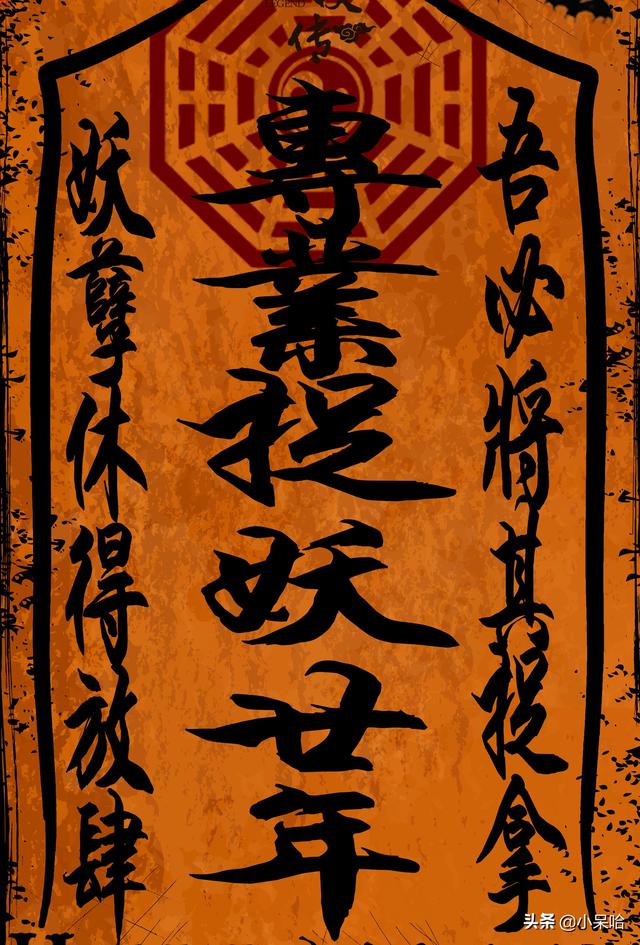 EGEND
传
吾必將其捉拿
專業捉妖廿年
妖孽休得放肆
头条 @小呆哈